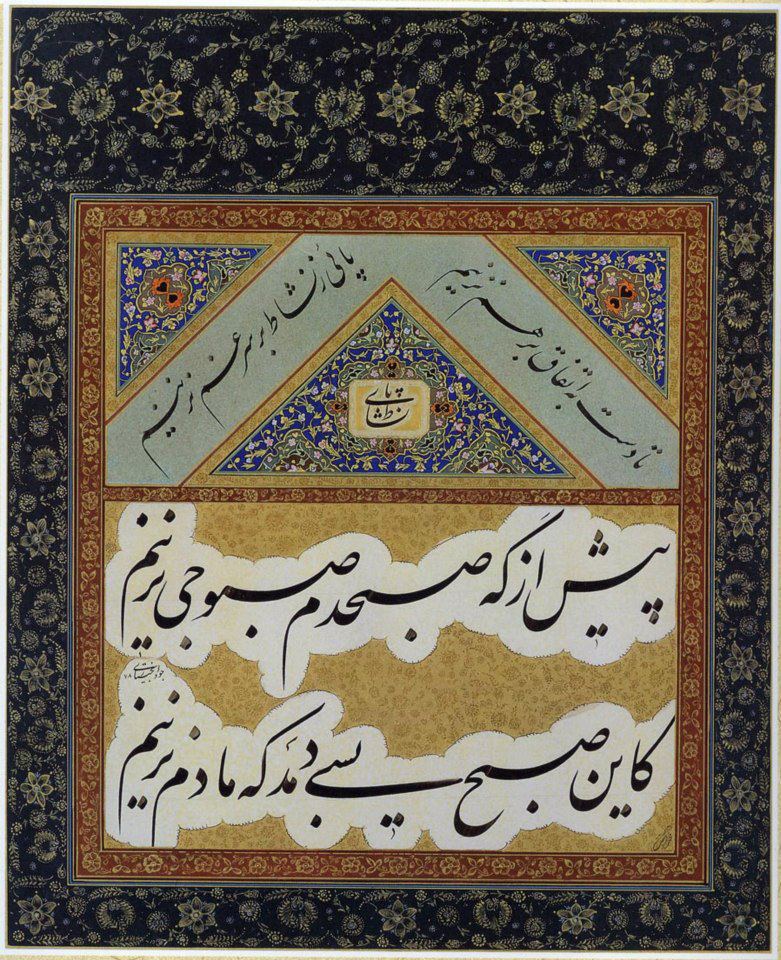 تا دست به اتفاق بر هم نزنیم
پائی ز نشاط بر سر غم نزنیم
پای نشاط
پیش از که صبحدم صبوحی بزنیم
جواد بختیاری ۷۸
کاین صبح بسی دمد که ما دم نزنیم